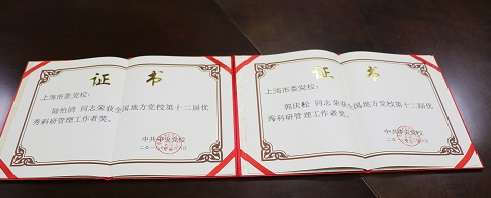 证书
上海市委党校:
同志荣获全国地方党校第十二届优
秀科研管理工作者奖。
中共中央党校
证书
上海市委党校:
郭庆松 同志荣获全国地方党校第十二届优
秀科研管理工作者奖。
中共中央党校